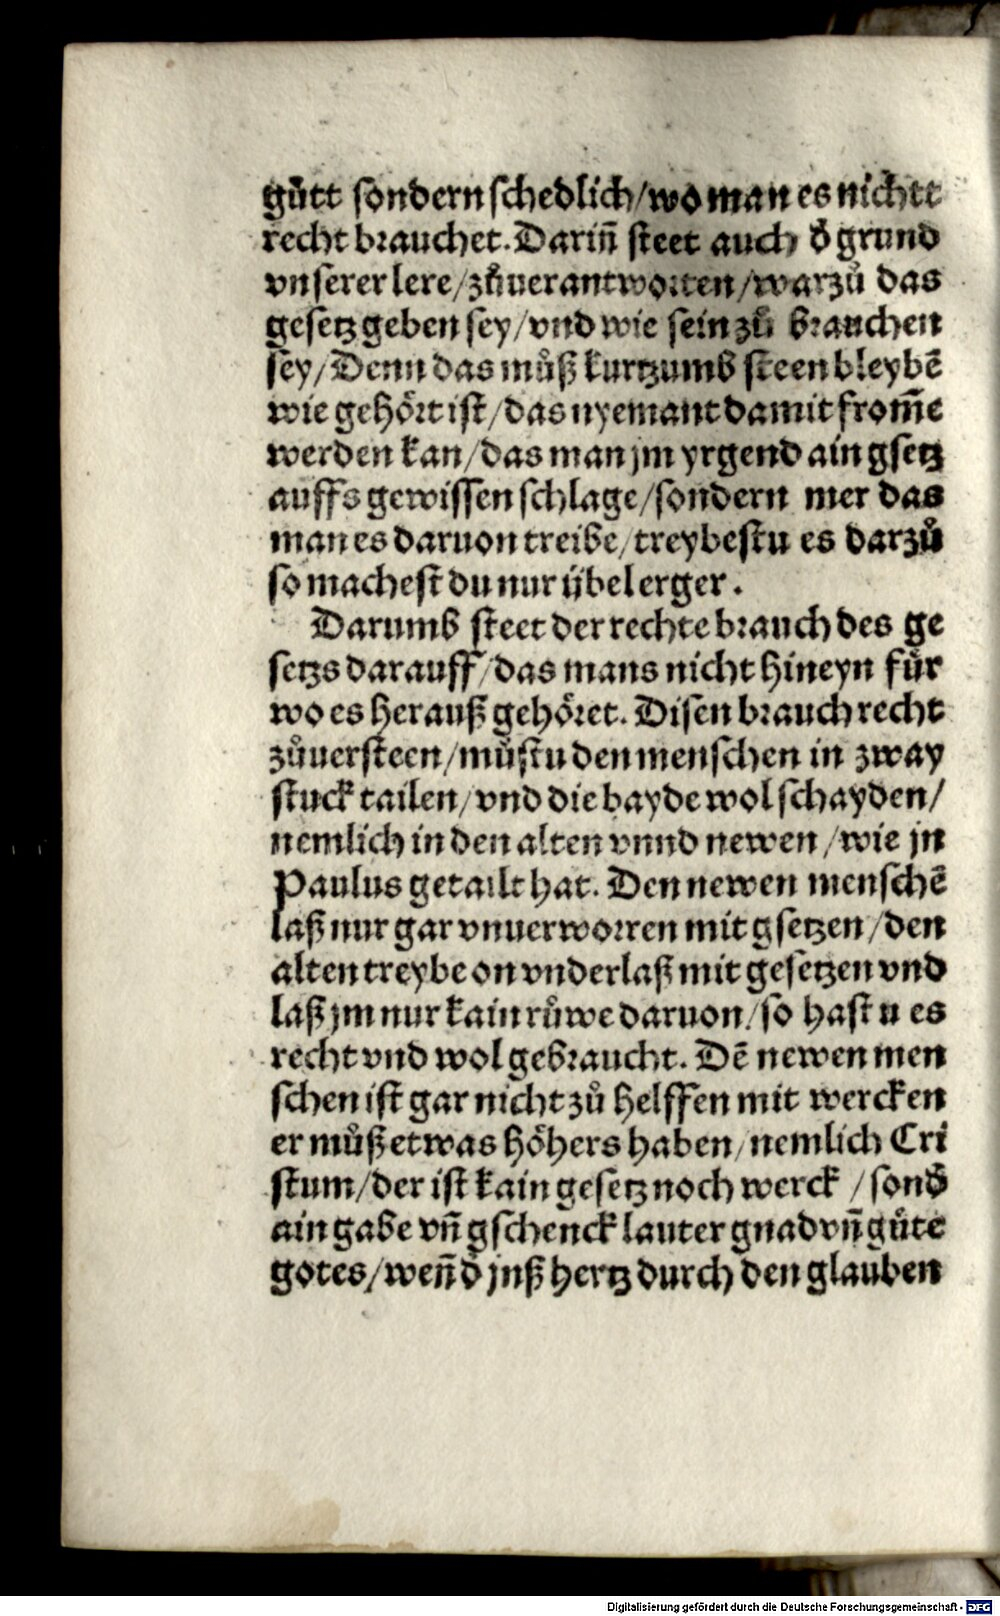 gůtt sondern schedlich/wo man es nichtt
recht brauchet. Dariñ steet auch d̕ grund
vnserer lere/zůuerantworten/warzů das
gesetz geben sey/vnd wie sein zů brauchen
sey/Denn das můß kurtzumb steen bleybē
wie gehört ist/das nyemant damit from̄e
werden kan/das man jm yrgend ain gsetz
auffs gewissen schlage/sondern mer das
man es daruon treibe/treybestu es darzů
so machest du nur übel erger.
Darumb steet der rechte brauch des ge
setzs darauff/das mans nicht hineyn fůr
wo es herauß gehöret. Disen brauch recht
zůuersteen/můstu den menschen in zway
stuck tailen/vnd die bayde wol schayden/
nemlich in den alten vnnd newen/wie jn
Paulus getailt hat. Den newen menschē
laß nur gar vnuerworren mit gsetzen/den
alten treybe on vnderlaß mit gesetzen vnd
laß jm nur kain růwe daruon/so hastu es
recht vnd wol gebraucht. Dē newen men
schen ist gar nicht zů helffen mit wercken
er můß etwas höhers haben/nemlich Cri
stum/der ist kain gesetz noch werck/sond̕
ain gabe vñ gschenck lauter gnad vñ güte
gotes/weñ d̕ jnß hertz durch den glauben
Digitalisierung gefördert durch die Deutsche Forschungsgemeinschaft - DFG